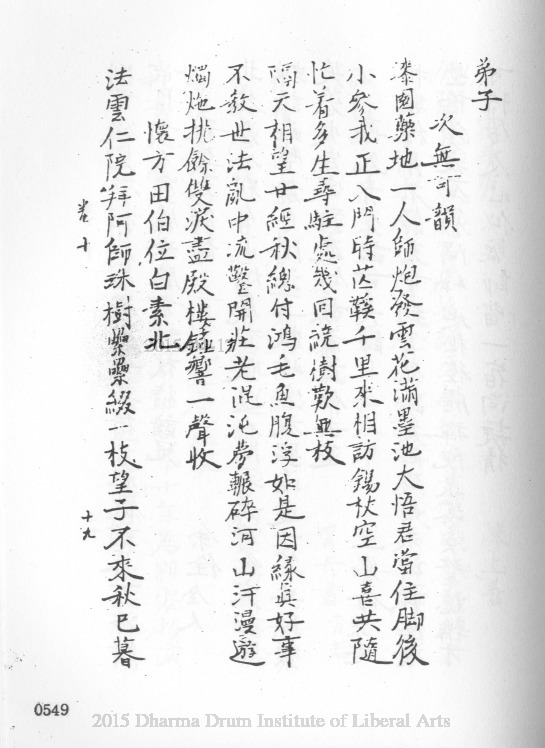 弟子
次無可韻
漆園藥地一人師炮發雲花滿墨池大悟君當住脚後
小參我正入門時芒鞵千里來相訪錫杖空山喜共隨
忙着多生尋駐處幾回繞樹歎無枝
隔天相望廿經秋總付鴻毛魚腹浮如是因緣眞好事
不教世法亂中流鑿開莊老混沌夢輾碎河山汗漫遊
燭灺挑餘雙淚盡殿樓鐘響一聲收
懷方田伯位白素北
法雲仁院拜阿師珠樹纍纍綴一枝望子不來秋已暮
卷十
十九
0549
2015 Dharma Drum Institute of Liberal Arts